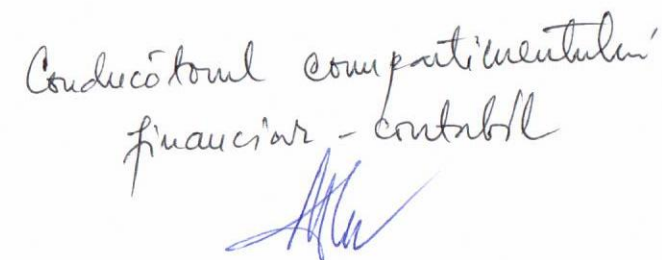 Conducătorul compartimentului
financiar - contabil